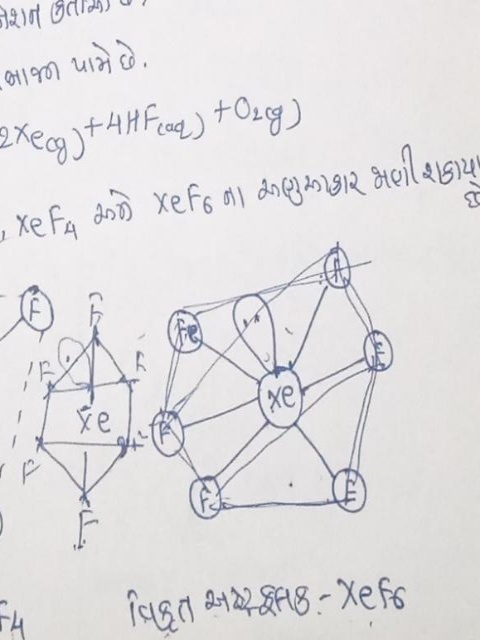 પામે છે.
2Xe(g) + 4HF(aq) + O2(g)
, XeF4 અને XeF6 ના
છે
F
F
F
F
Xe
F
F
F
Fe
F
Xe
F
F
F
F4
વિકૃત અષ્ટફલક - XeF6